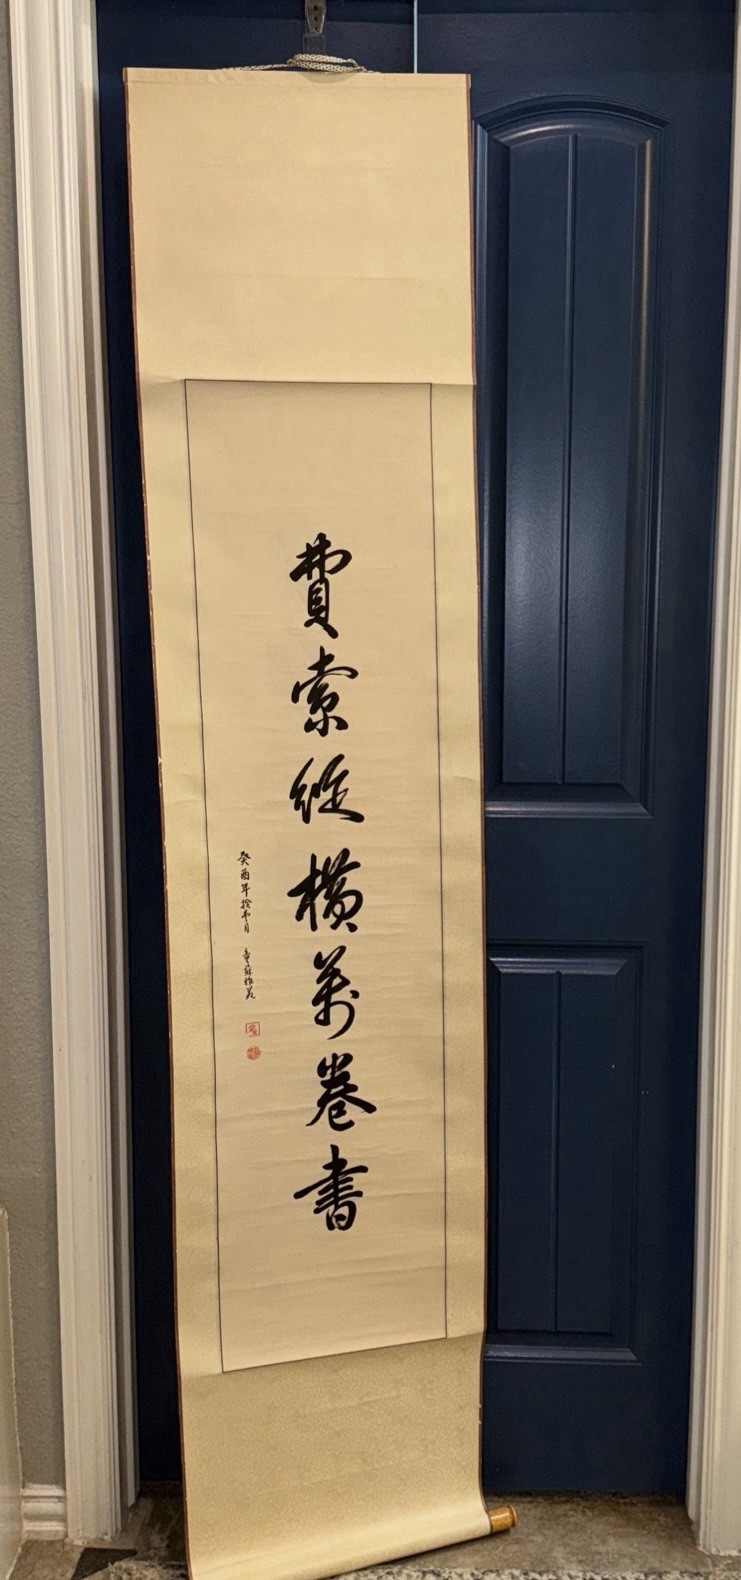 費索縱橫萬卷書
癸酉年拾弍月